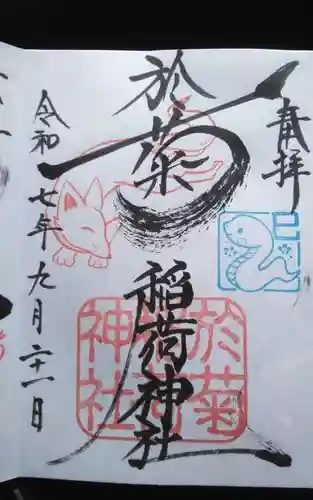 奉拝
巳
於菊
稲荷神社
於菊稲荷神社
令和七年九月二十一日